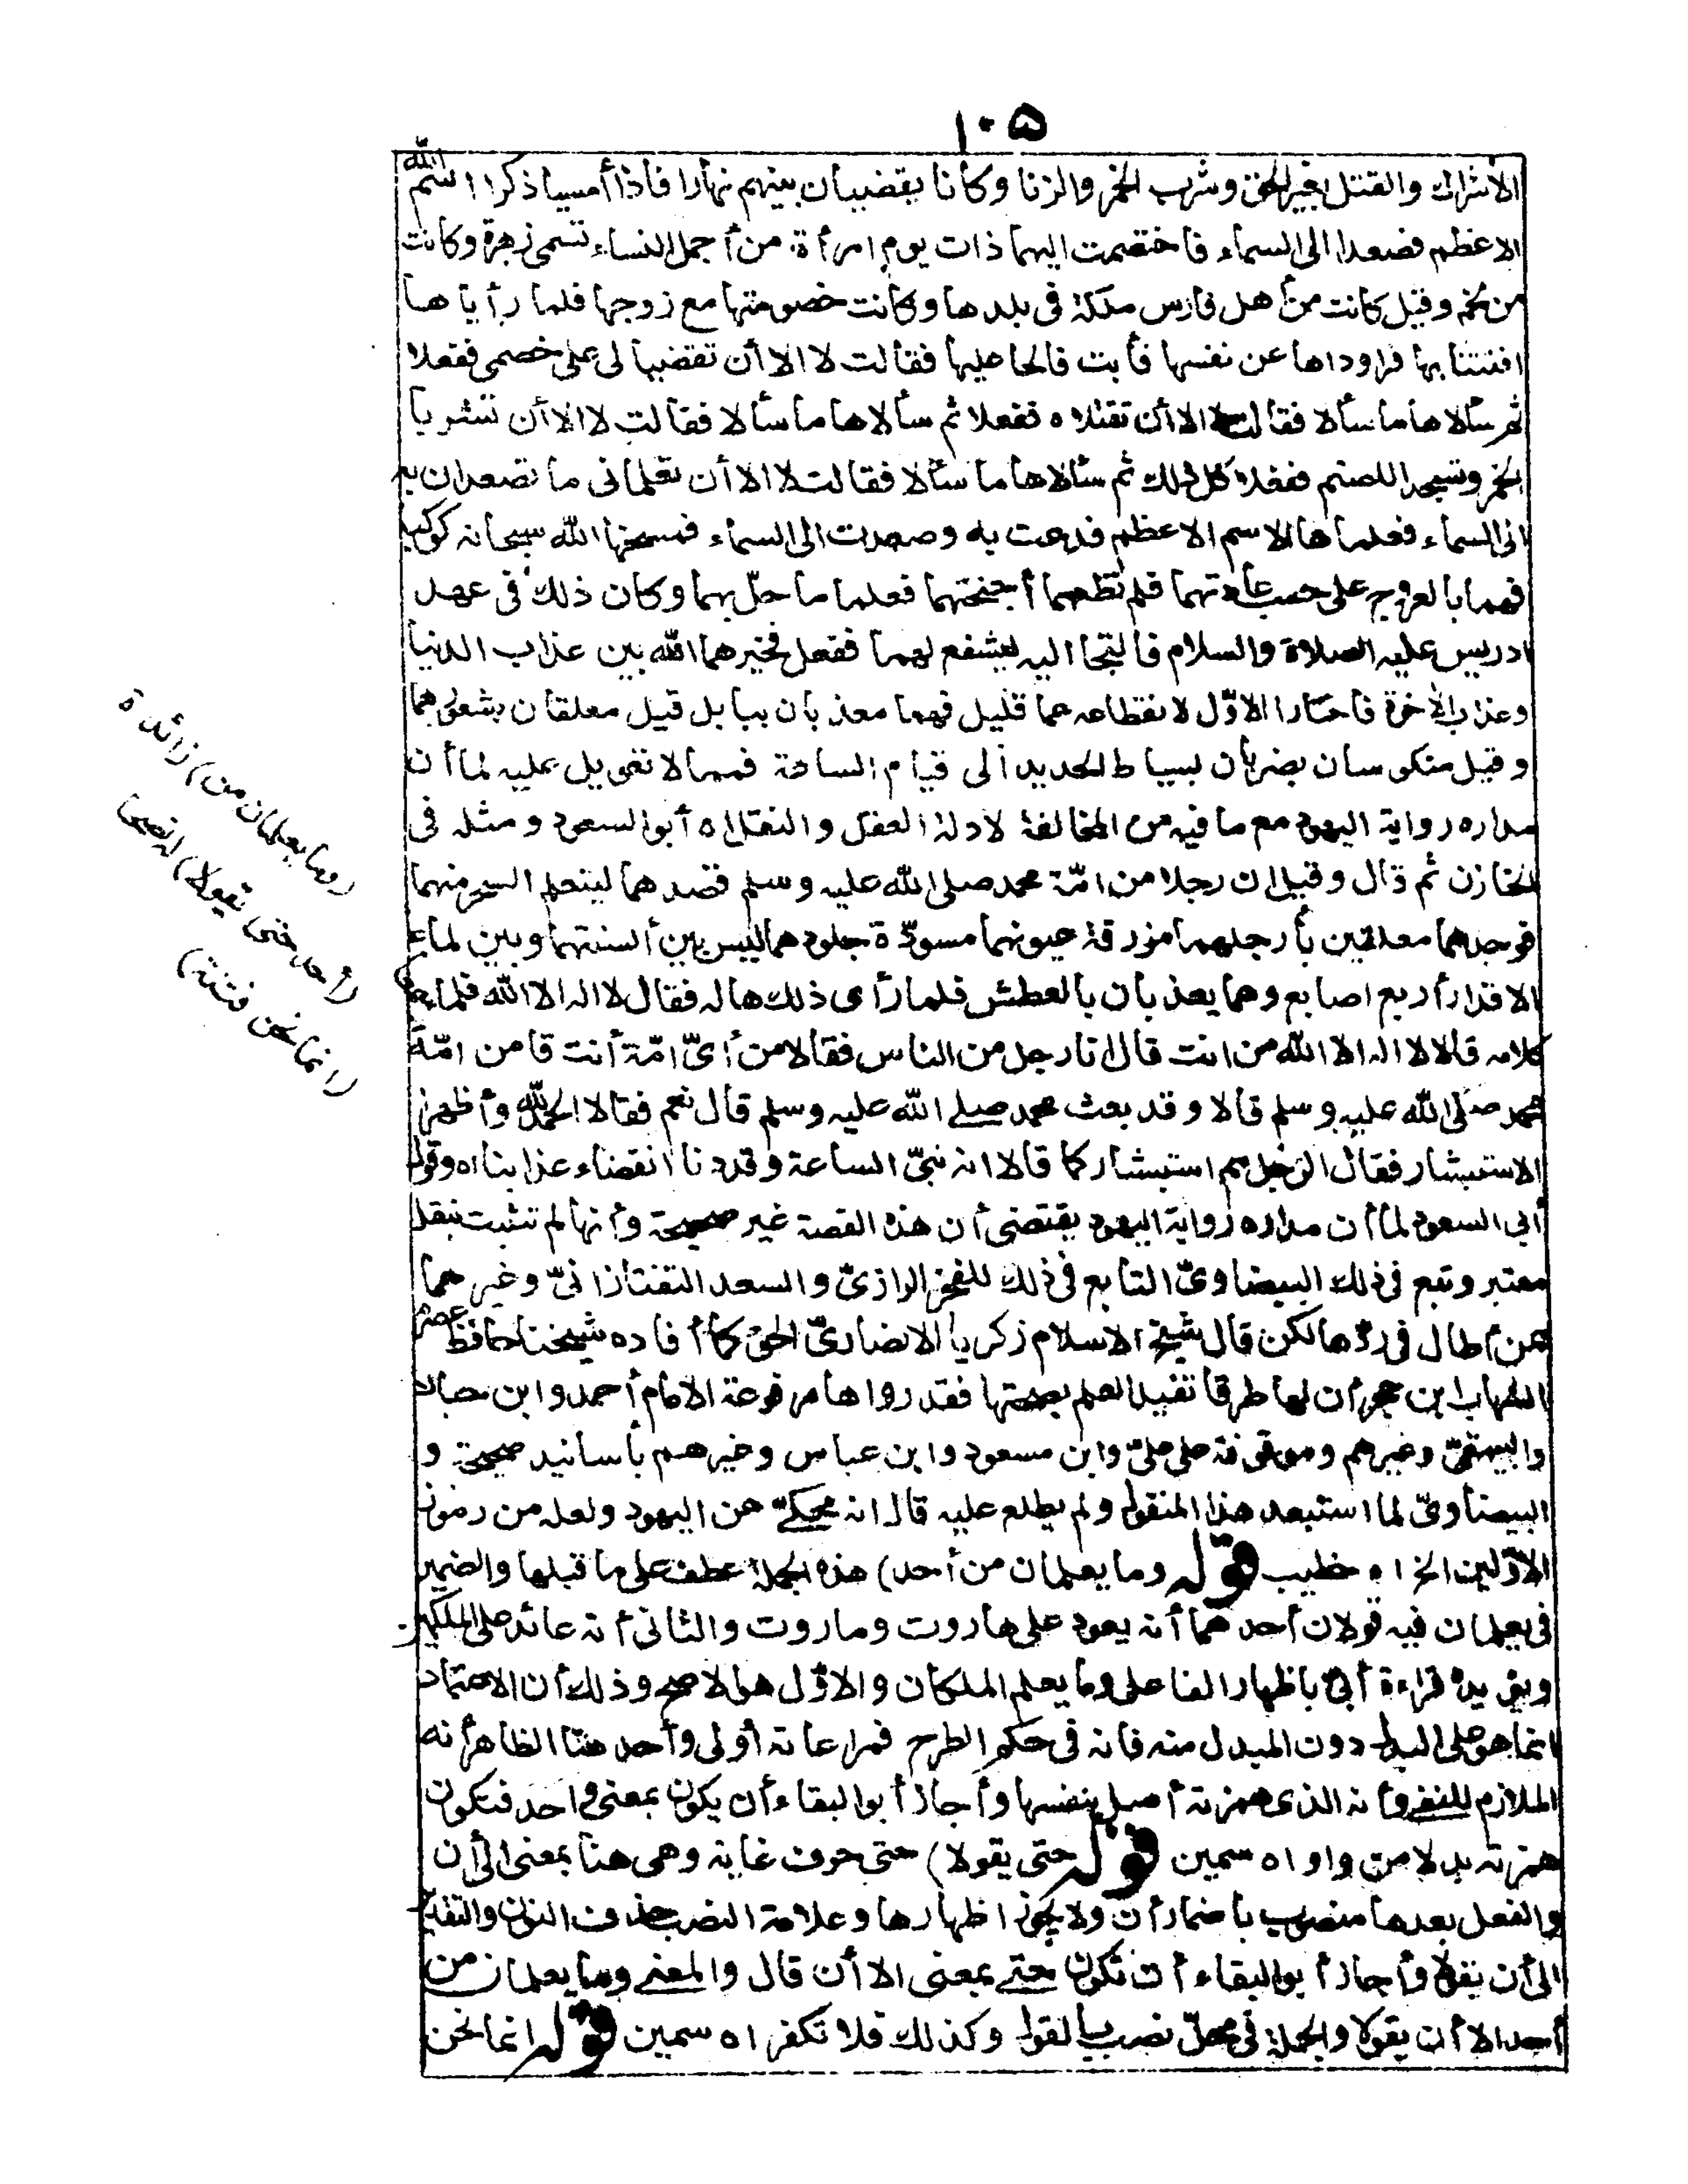 ١٠٥
الاشراك والقتل بغير الحق وشرب الخمر والزنا وكانا يقضيان بينهم نهارا فاذا أمسيا ذكرا اسم الله
الاعظم فصعدا الى السماء فاختصمت اليهما ذات يوم امرأة من أجمل النساء تسمى زهرة وكانت
من لخم وقيل كانت من أهل فارس ملكة في بلدها وكانت خصومتها مع زوجها فلما رأياها
افتتنا بها فراوداها عن نفسها فأبت فألحا عليها فقالت لا الا أن تقضيا لى على خصمى ففعلا
ثم سألاها ما سألا فقالت لا الا أن تقتلاه ففعلا ثم سألاها ما سألا فقالت لا الا أن تشربا
الخمر وتسجدا للصنم ففعلا كل ذلك ثم سألاها ما سألا فقالت لا الا أن تعلمانى ما تصعدان به
الى السماء فعلماها الاسم الاعظم فدعت به وصعدت الى السماء فمسخها الله سبحانه كوكبا
فهما بالعروج على حسب عادتهما فلم تطعهما أجنحتهما فعلما ما حلّ بهما وكان ذلك في عهد
ادريس عليه الصلاة والسلام فالتجا اليه ليشفع لهما ففعل فخيرهما الله بين عذاب الدنيا
وعذاب الآخرة فاختارا الاوّل لانقطاعه عما قليل فهما معذبان ببابل قيل معلقان بشعورهما
وقيل منكوسان يضربان بسياط الحديد الى قيام الساعة فمما لا تعويل عليه لما أن
مداره رواية اليهود مع ما فيه من المخالفة لادلة العقل والنقل اه أبو السعود ومثله فى
الخازن ثم قال وقيل ان رجلا من امّة محمد صلى الله عليه وسلم قصدهما ليتعلم السحر منهما
فوجدهما معلقين بأرجلهما مزرقة عيونهما مسودّة جلودهما ليس بين ألسنتهما وبين الماء
الا قدر أربع اصابع وهما يعذبان بالعطش فلما رأى ذلك هاله فقال لا اله الا الله فلما سمعا
كلامه قالا لا اله الا الله من انت قال انا رجل من الناس فقالا من أىّ امّة أنت قا من امّة
محمد صلى الله عليه وسلم قالا وقد بعث محمد صلى الله عليه وسلم قال نعم فقالا الحمد لله وأظهرا
الاستبشار فقال الرجل مم استبشاركما قالا انه نبىّ الساعة وقد دنا انقضاء عذابنا اه وقول
أبى السعود لما أن مداره رواية اليهود يقتضى أن هذه القصة غير صحيحة وأنها لم تثبت بنقل
معتبر وتبع فى ذلك البيضاوىّ التابع فى ذلك للفخر الرازىّ والسعد التفتازانىّ وغيرهما
ممن أطال فى ردّها لكن قال شيخ الاسلام زكريا الانصارىّ الحق كما أفاده شيخنا حافظ عصره
الشهاب ابن حجر أن لها طرقا تفيد العلم بصحتها فقد رواها مرفوعة الامام أحمد وابن حبان
والبيهقىّ وغيرهم وموقوفة على علىّ وابن مسعود وابن عباس وغيرهم بأسانيد صحيحة و
البيضاوىّ لما استبعد هذا المنقول ولم يطلع عليه قال انه محكىّ عن اليهود ولعله من رموز
الاوّلين الخ اه خطيب قوله وما يعلمان من أحد) هذه الجملة عطف على ما قبلها والضمير
فى يعلمان فيه قولان أحدهما أنه يعود على هاروت وماروت والثانى أنه عائد على الملكين
ويؤيده قراءة أبىّ باظهار الفاعل وما يعلم الملكان والاوّل هو الاصح وذلك أن الاعتماد
انما هو على البدل دون المبدل منه فانه فى حكم الطرح فمراعاته أولى وأحد هنا الظاهر أنه
الملازم للنفى وأنه الذى همزته أصل بنفسها وأجاز أبو البقاء أن يكون بمعنى واحد فتكون
همزته بدلا من واو اه سمين قوله حتى يقولا) حتى حرف غاية وهى هنا بمعنى الى أن
والفعل بعدها منصوب باضمار أن ولا يجوز اظهارها وعلامة النصب حذف النون والتقدير
الى أن يقولا وأجاز أبو البقاء أن تكون حتى بمعنى الا أن قال والمعنى وما يعلمان من
أحد الا أن يقولا والجملة فى محلّ نصب بالقول وكذلك فلا تكفر اه سمين قوله انما نحن
(وما يعلمان من) زائدة
(أحد حتى يقولا) له نصيحا
(انما نحن فتنة)